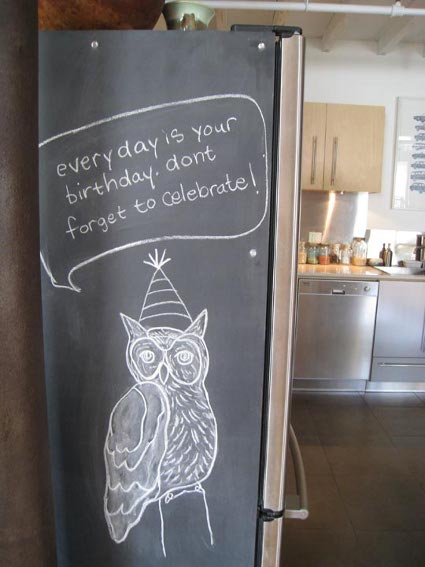 everyday is your
birthday. dont
forget to celebrate!